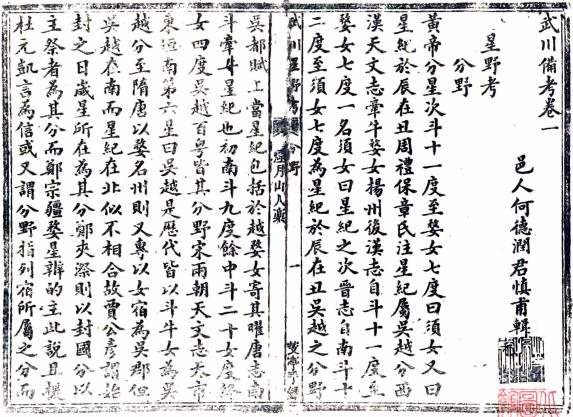 武川備考卷一
邑人何德潤君慎甫輯
星野考
分野
黃帝分星次斗十一度至婺女七度曰須女又曰
星紀於辰在丑周禮保章氏注星紀屬吳越分西
漢天文志牽牛婺女揚州後漢志自斗十一度至
婺女七度一名須女曰星紀之次晉志自南斗十
二度至須女七度為星紀於辰在丑吳越之分野
武川備考
分野
一
吳都賦上當星紀包括於越婺女寄其曜唐志南
斗牽牛星紀也初南斗九度餘中斗二十女度終
女四度吳越百粵皆其分野宋兩朝天文志天市
東垣南第六星曰吳越是歷代皆以斗牛女為吳
越分至隋唐以婺名州則又專以女宿為吳郡但
吳越在南而星紀在北似不相合故賈公彥謂始
封之日歲星所在為其分鄭夾漈則以封國分以
主祭者為其分而鄭宗疆婺星辨的主此說且據
杜元凱言為信或又謂分野指列宿所屬之分而